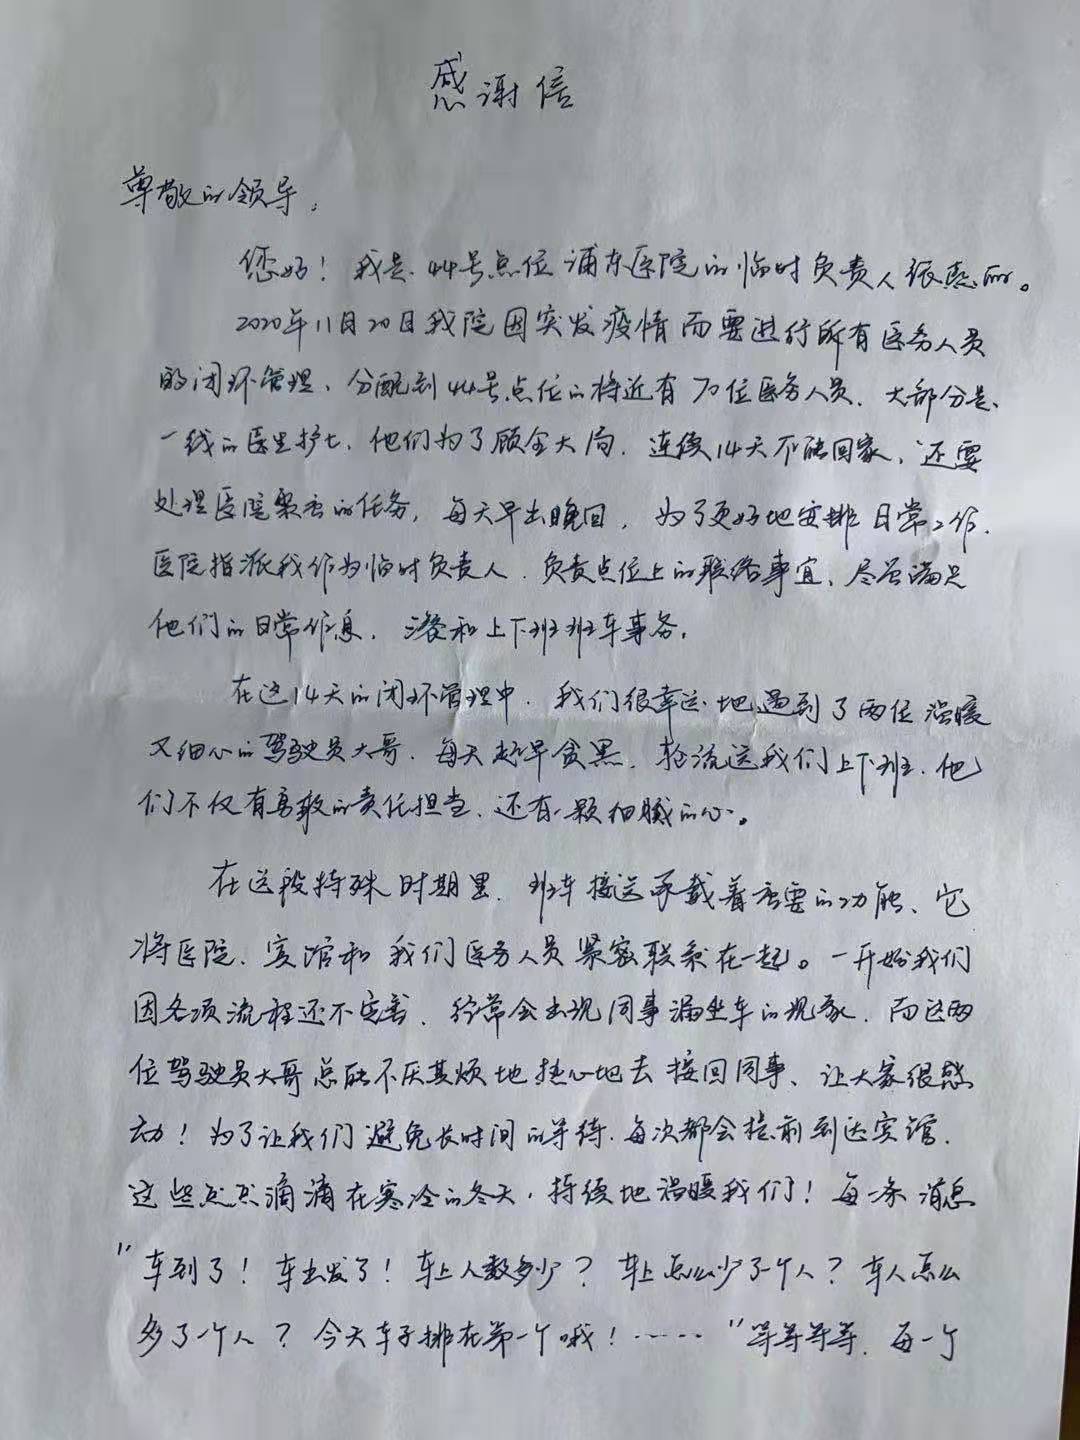 感谢信
尊敬的领导，
您好！我是44号点位浦东医院的临时负责人张
2020年11月20日我院因突发疫情而要进行所有医务人员
的闭环管理、分配到44号点位的将近有70位医务人员，大部分是
一线的医生护士，他们为了顾全大局，连续14天不能回家，还要
处理医院繁重的任务，每天早出晚回，为了更好地安排日常工作，
医院指派我作为临时负责人，负责点位上的联络事宜、尽量满足
他们的日常作息，就餐和上下班班车事务。
在这14天的闭环管理中，我们很幸运地遇到了两位温暖
又细心的驾驶员大哥，每天起早贪黑，轮流送我们上下班，他
们不仅有勇敢的责任担当，还有一颗细腻的心。
在这段特殊时期里，班车接送承载着重要的功能、它
将医院、宾馆和我们医务人员紧密联系在一起。一开始我们
因各项流程还不完善，经常会出现同事漏坐车的现象，而这两
位驾驶员大哥总能不厌其烦地热心地去接回同事、让大家很感
动！为了让我们避免长时间的等待，每次都会提前到达宾馆，
这些点点滴滴在寒冷的冬天，持续地温暖我们！每一条消息
"车到了！车出发了！车上人数多少？车上怎么少了个人？车人怎么
多了一个人？今天车子排在第一个哦！……"等等等等，每一个